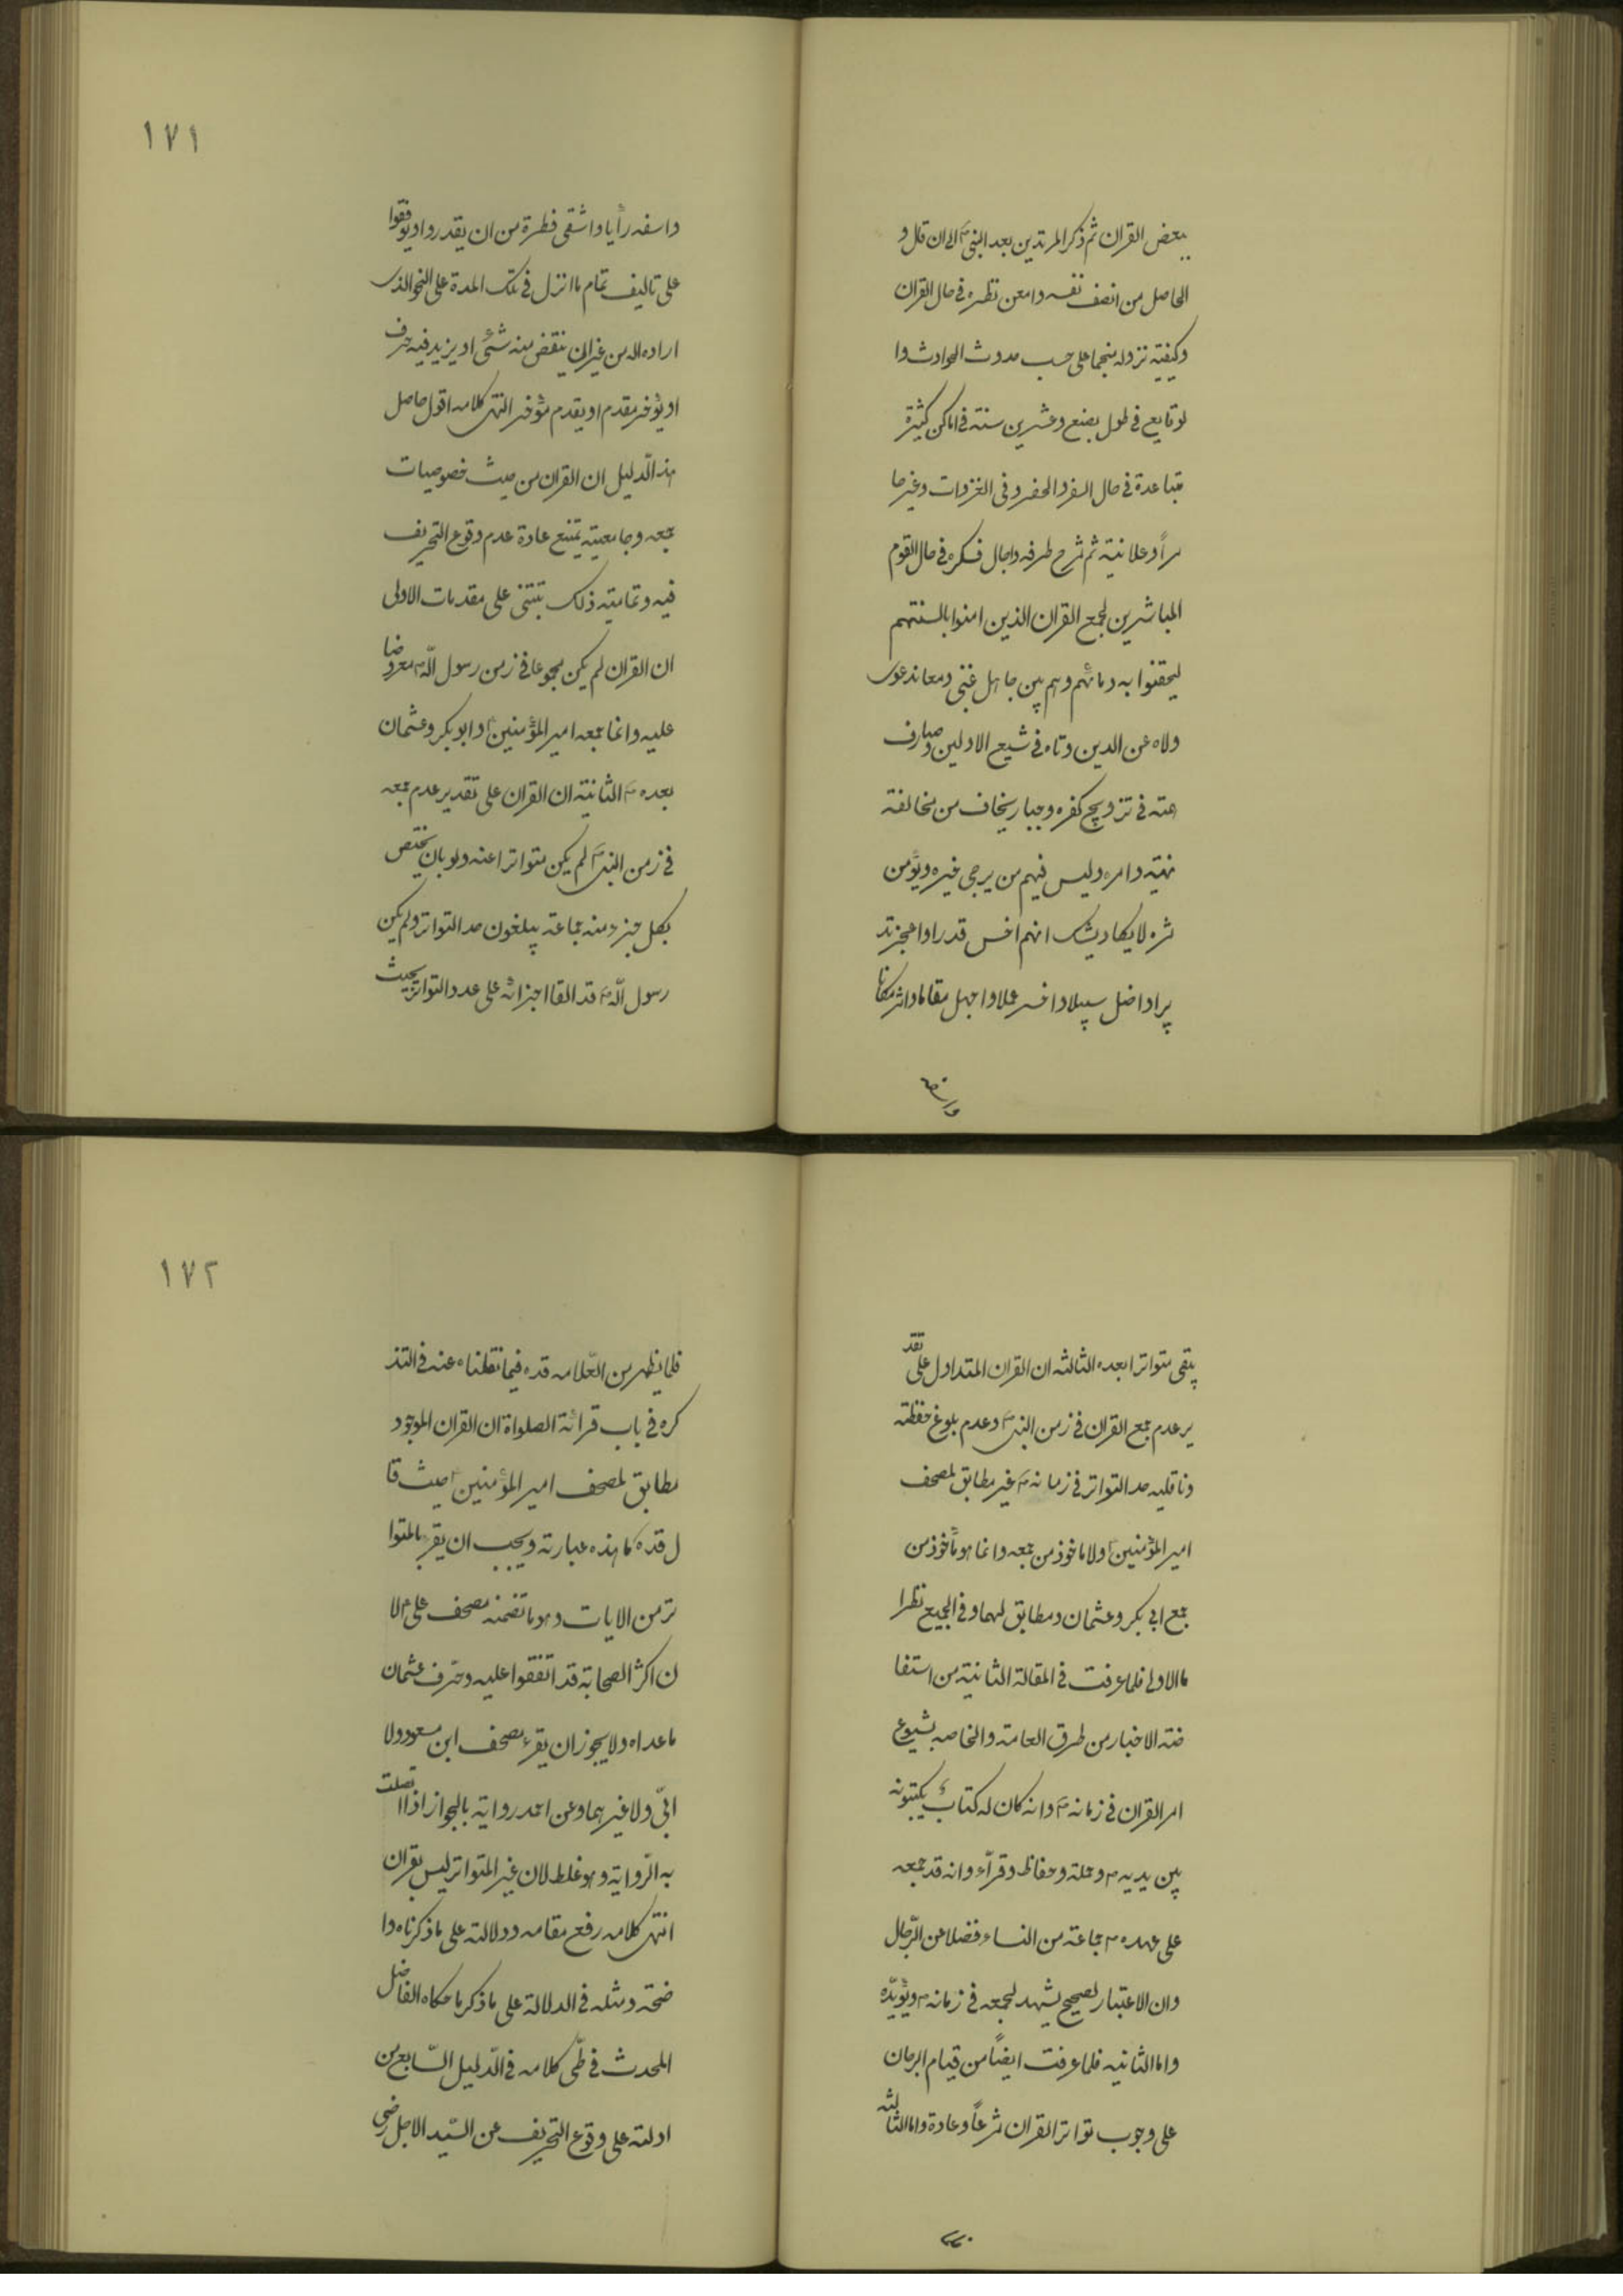 بعض القران ثم ذكر المرتدين بعد النبى ص الى ان قال و
الحاصل من انصف نفسه وامعن نظره فى حال القران
وكيفية نزوله منجما على حسب حدوث الحوادث وا
لوقايع فى طول بضع وعشرين سنة فى اماكن كثيرة
متباعدة فى حال السفر والحضر وفى الغزوات وغيرها
سراً وعلانية ثم سرح طرفه واجال فكره فى حال القوم
المباشرين لجمع القران الذين امنوا بالسنتهم
ليحقنوا به دمائهم وهم بين جاهل غبى ومعاند غوى
ولاه عن الدين وتاه فى شيع الاولين وصارف
همته فى ترويج كفره وجبار يخاف من مخالفة
نهيه وامره وليس فيهم من يرجى خيره ويؤمن
شره لا يكاد يشك انهم اخس قدرا واعجز تد
بيرا واضل سبيلا واخسر عملا واجهل مقاما واشر مكانا
واسفه
١٧١
واسفه رأيا واشقى فطرة من ان يقدروا او يوفقوا
على تاليف تمام ما انزل فى تلك المدة على النحو الذى
اراده الله من غير ان ينقص منه شئ او يزيد فيه حرف
او يؤخر مقدم او يقدم مؤخر انتهى كلامه اقول حاصل
هذا الدليل ان القران من حيث خصوصيات
جمعه وجامعيته يمتنع عادة عدم وقوع التحريف
فيه وتمامية ذلك تبتنى على مقدمات الاولى
ان القران لم يكن مجموعا فى زمن رسول الله ص معروضا
عليه وانما جمعه امير المؤمنين ع وابو بكر وعثمان
بعده ص الثانية ان القران على تقدير عدم جمعه
فى زمن النبى ص لم يكن متواترا عنه ولو بان يختص
بكل جزء منه جماعة يبلغون حد التواتر ولم يكن
رسول الله ص قد القا اجزائه على عدد التواتر بحيث
يبقى متواترا بعده الثالثه ان القران المتداول على تقد
ير عدم جمع القران فى زمن النبى ص وعدم بلوغ حفظته
وناقليه حد التواتر فى زمانه ص غير مطابق لمصحف
امير المؤمنين ع ولا ماخوذ من جمعه وانما هو مأخوذ من
جمع ابى بكر وعثمان ومطابق لهما وفى الجميع نظر ا
ما الاولى فلما عرفت فى المقالة الثانية من استفا
ضة الاخبار من طرق العامة والخاصه بشيوع
امر القران فى زمانه ص وانه كان له كتابٌ يكتبونه
بين يديه ص وحملة وحفاظ وقرّاء وانه قد جمعه
على عهده ص جماعة من النساء فضلا عن الرّجال
وان الاعتبار الصحيح يشهد لجمعه فى زمانه ص ويؤيّده
واما الثانيه فلما عرفت ايضاً من قيام البرهان
على وجوب تواتر القران شرعاً وعادة واما الثالثه
١٧٢
فلما يظهر من العّلامه قده فيما نقلناه عنه فى التذ
كره فى باب قرائة الصلواة ان القران الموجود
مطابق لمصحف امير المؤمنين ع حيث قا
ل قده ما هذه عبارته ويجب ان يقرء بالمتوا
تر من الايات وهو ما تضمنه مصحف على ع لا
ن اكثر الصحابة قد اتفقوا عليه وحرّف عثمان
ما عداه ولا يجوز ان يقرء مصحف ابن مسعود ولا
ابىّ ولا غيرهما وعن احمد رواية بالجواز اذا اتصلت
به الرّواية وهو غلط لان غير المتواتر ليس بقران
انتهى كلامه رفع مقامه ودلالته على ما ذكرناه وا
ضحة ومثله فى الدلالة على ما ذكر ما حكاه الفاضل
المحدث فى طىّ كلامه فى الدّليل السّابع من
ادلته على وقوع التحريف عن السّيد الاجل رضى